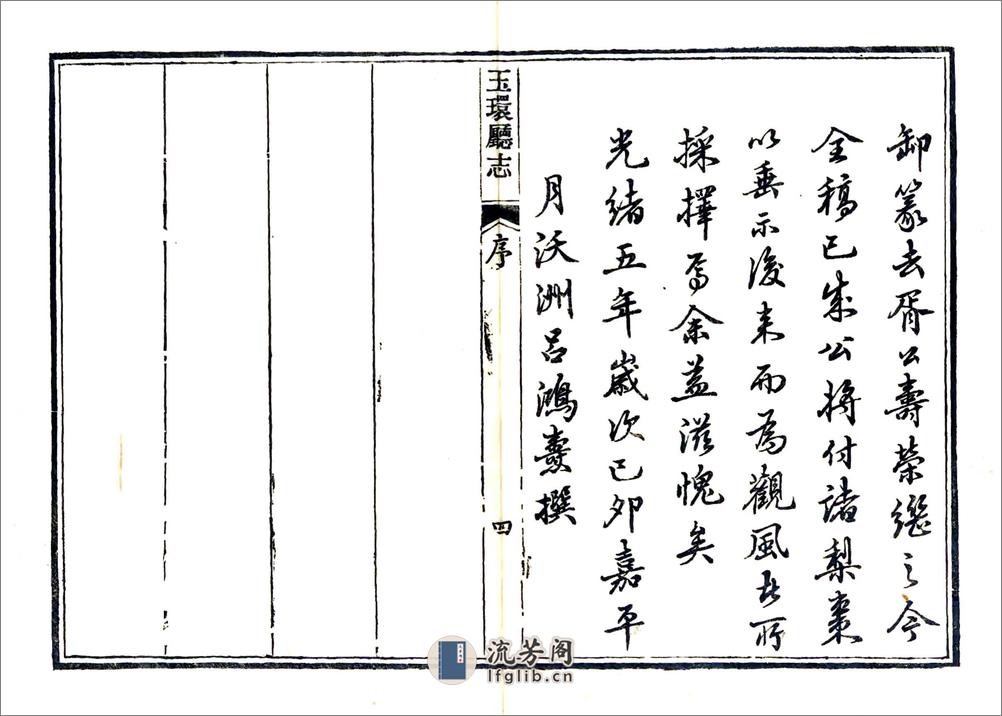 卸篆去胥公壽榮繼之今
全稿已成公將付諸梨棗
以垂示後来而為觀風者所
採擇焉余益滋愧矣
光緒五年歲次己卯嘉平
月沃洲呂鴻燾撰
玉環廳志
序
四
流芳阁
lfglib.cn